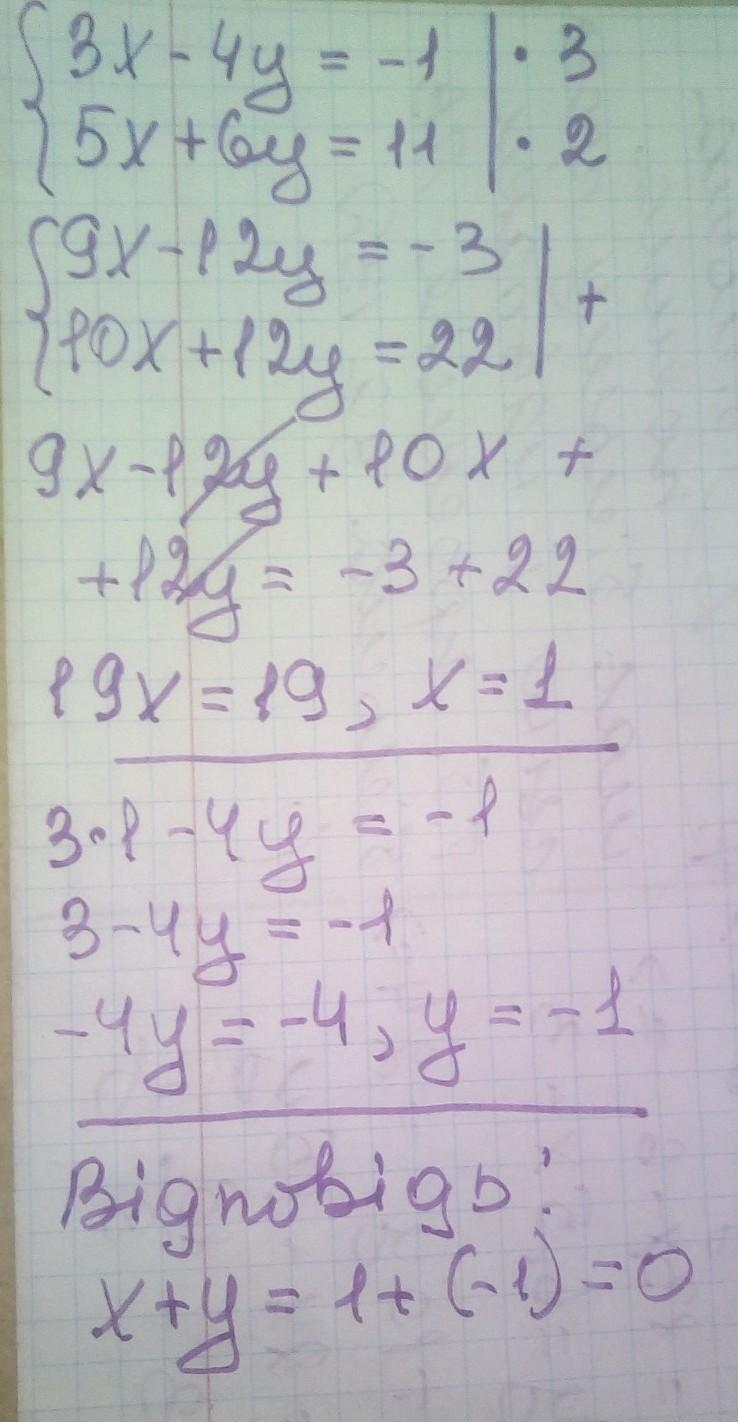 3x - 4y = -1 | · 3
5x + 6y = 11 | · 2
9x - 12y = -3
10x + 12y = 22 | +
9x - 12y + 10x +
+ 12y = -3 + 22
19x = 19, x = 1
3·1 - 4y = -1
3 - 4y = -1
-4y = -4, y = -1
Відповідь:
x + y = 1 + (-1) = 0